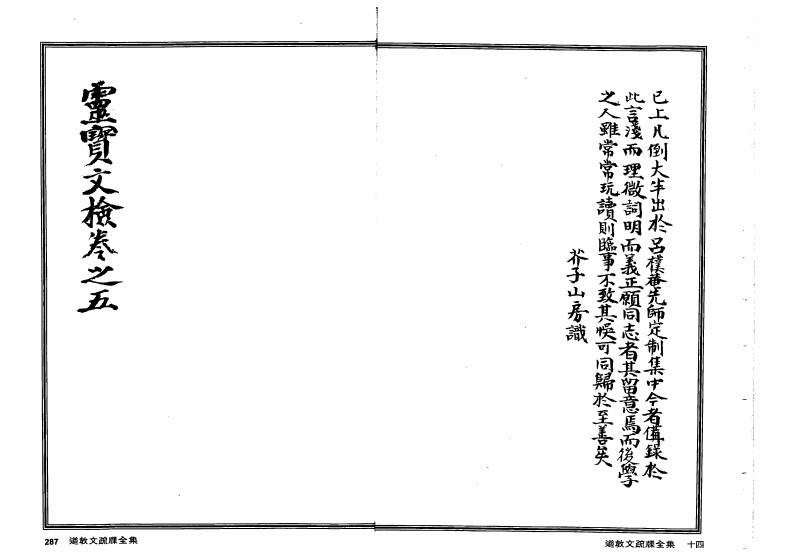 已上凡倒大半出於呂樸菴先師定制集中今者備錄於
此言淺而理微詞明而義正願同志者其留意焉而後學
之人雖常常玩讀則臨事不致其悞可同歸於至善矣
芥子山房識
靈寶文檢卷之五
287 道教文疏牒全集
道教文疏牒全集 十四